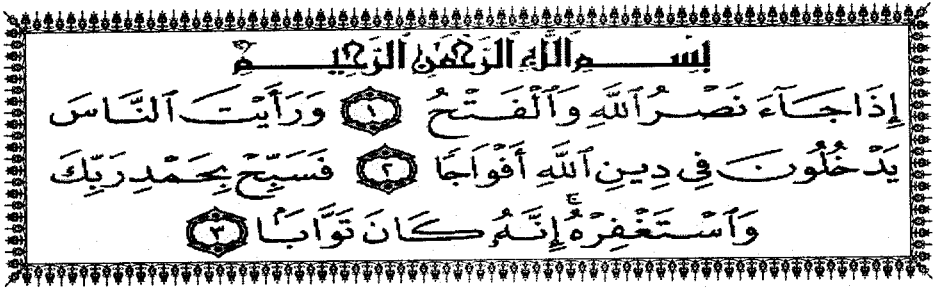 بِسْمِ ٱللَّهِ ٱلرَّحْمَٰنِ ٱلرَّحِيمِ
إِذَا جَآءَ نَصْرُ ٱللَّهِ وَٱلْفَتْحُ ۝١ وَرَأَيْتَ ٱلنَّاسَ
يَدْخُلُونَ فِى دِينِ ٱللَّهِ أَفْوَاجًا ۝٢ فَسَبِّحْ بِحَمْدِ رَبِّكَ
وَٱسْتَغْفِرْهُ ۚ إِنَّهُۥ كَانَ تَوَّابَۢا ۝٣